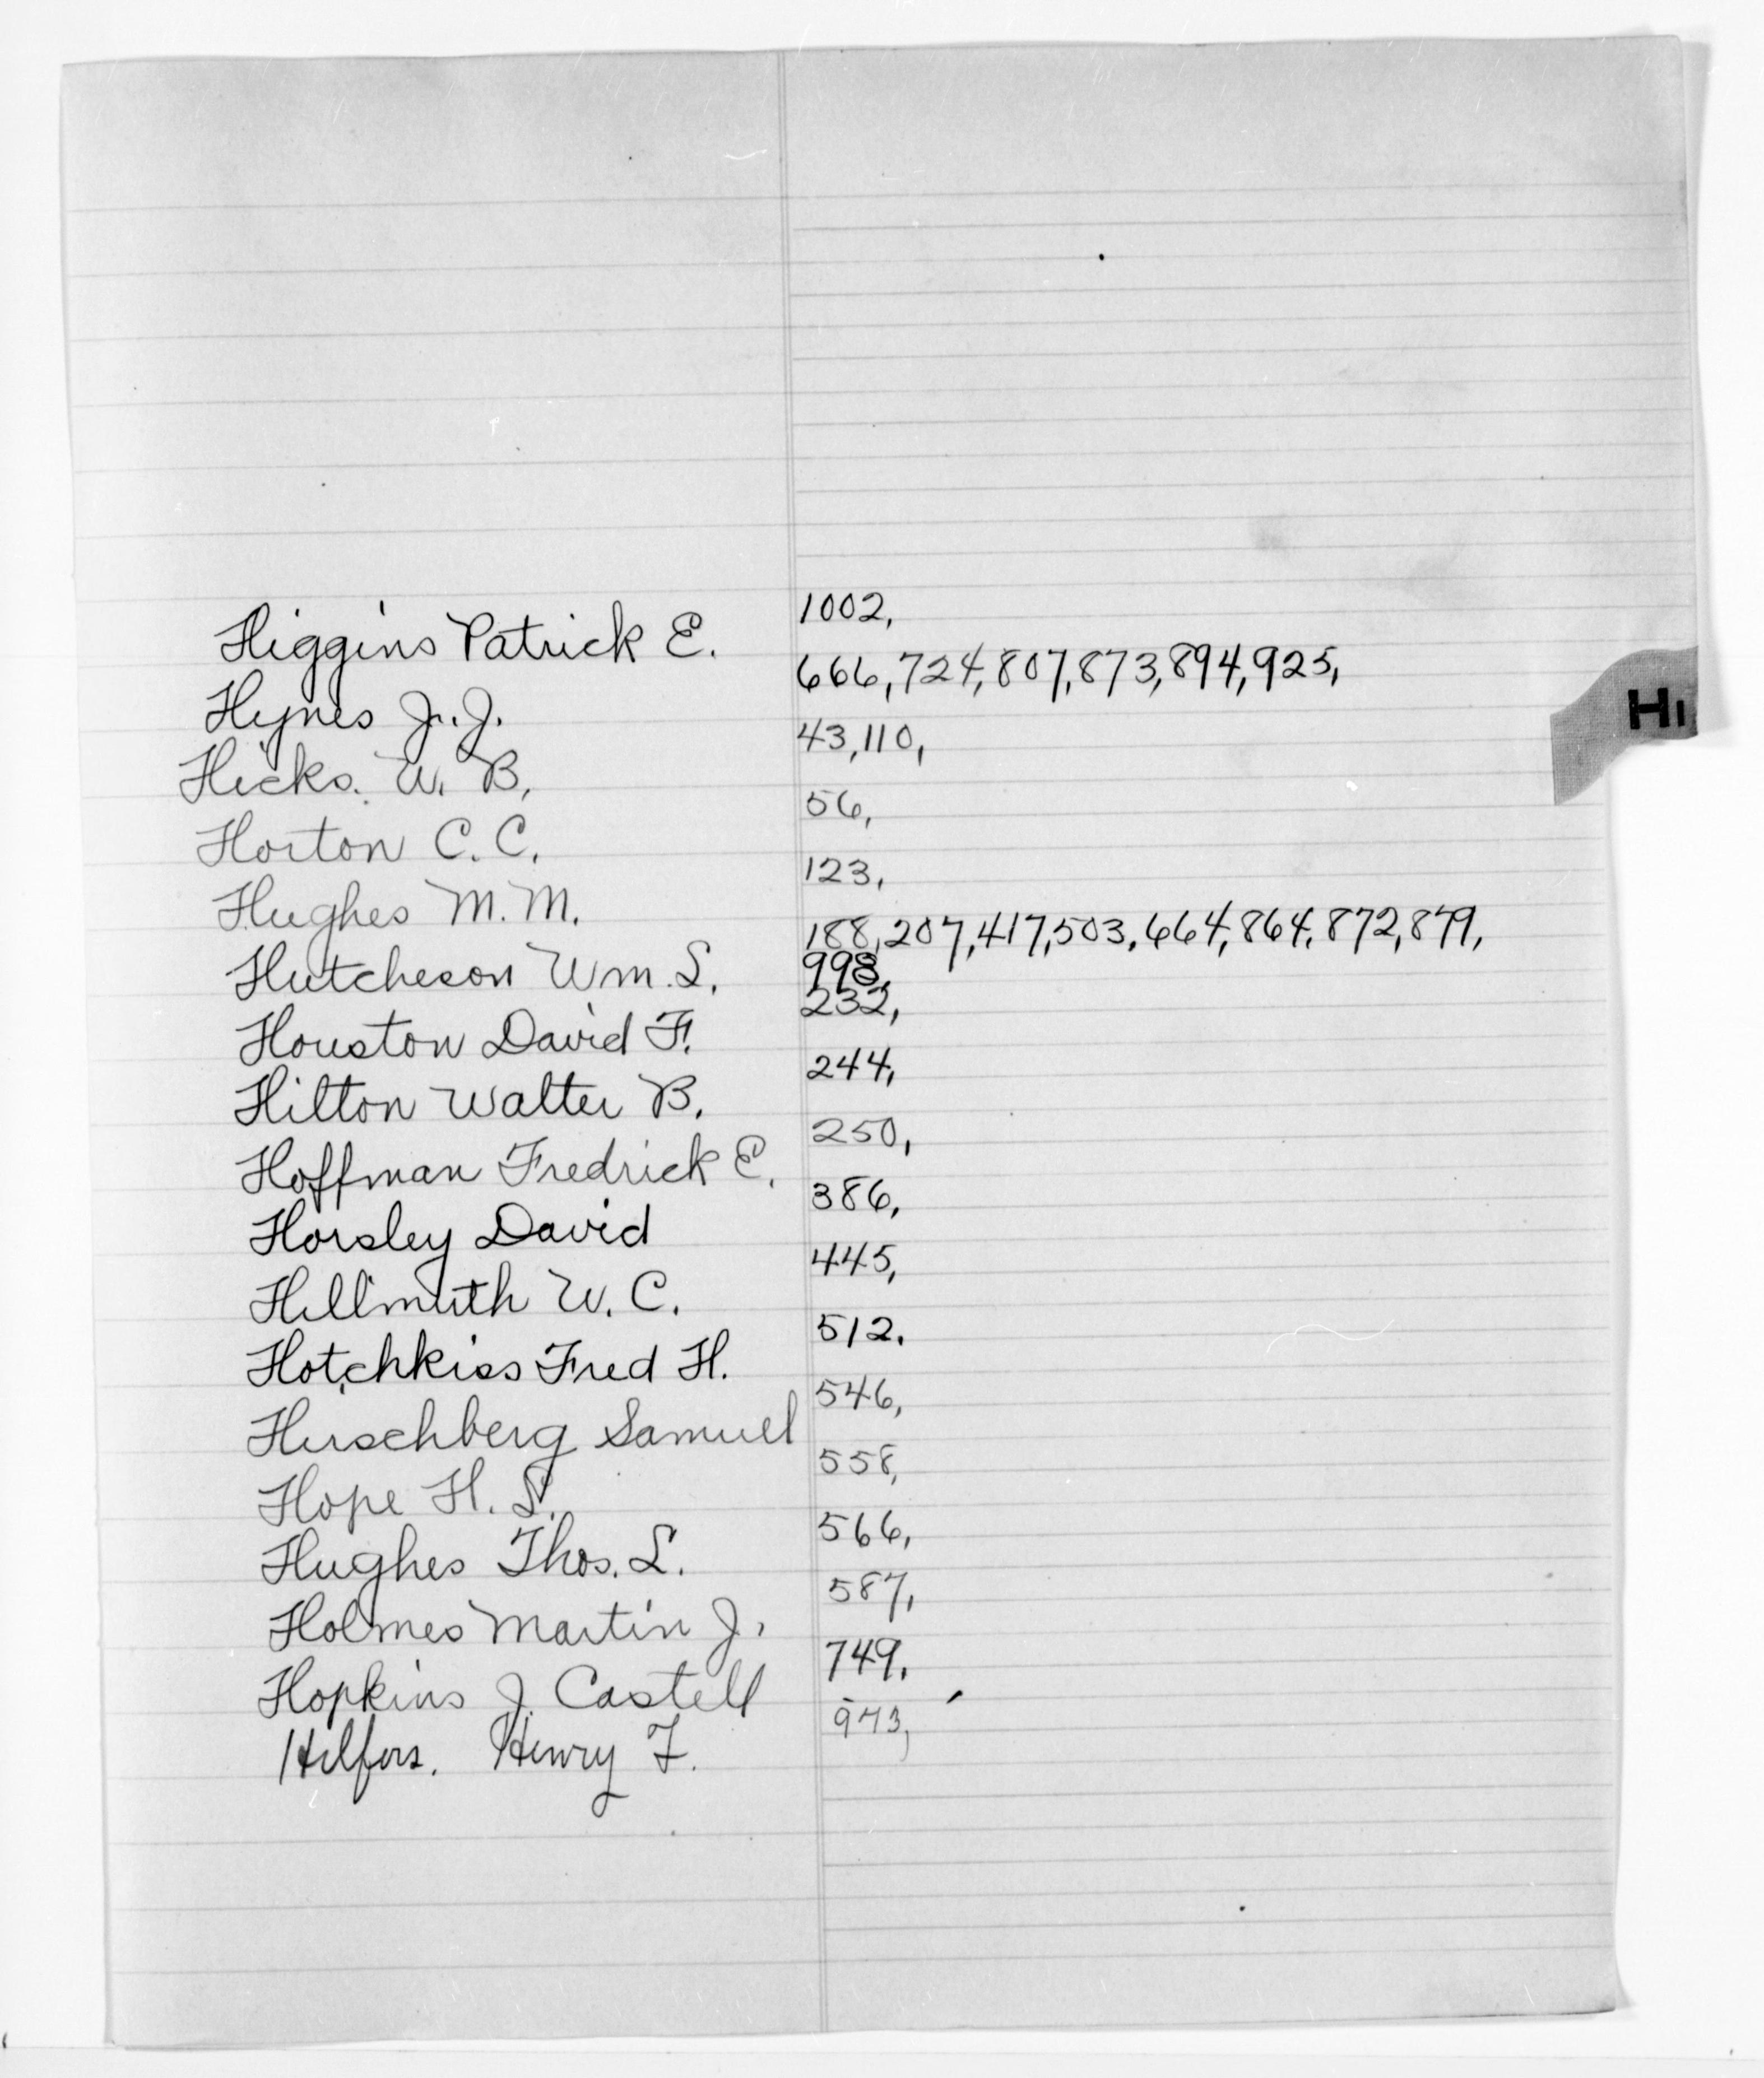 Higgins Patrick E. 1002,
Hynes J. J. 666, 724, 807, 873, 894, 925,
Hi
Hicks. W. B, 43, 110,
Horton C. C. 56,
Hughes M. M. 123,
Hutcheson Wm. L. 188, 207, 417, 503, 664, 864, 872, 879,
998,
Houston David F. 232,
Hilton Walter B. 244,
Hoffman Fredrick E. 250,
Horsley David 386,
Hellmuth W. C. 445,
Hotchkiss Fred H. 512,
Hirschberg Samuel 546,
Hope H. S. 558,
Hughes Thos. L. 566,
Holmes Martin J. 587,
Hopkins J. Castell 749,
Hilfers. Henry F. 973,